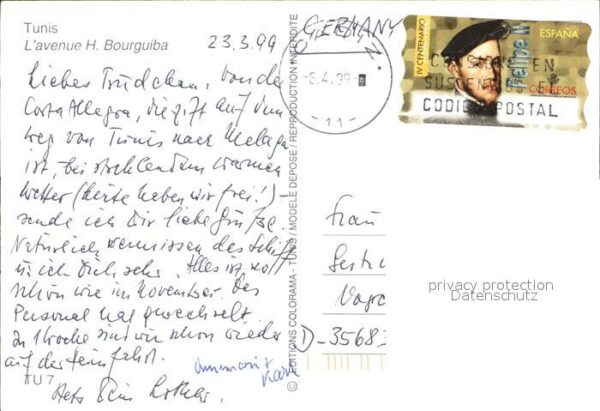 Tunis
L'avenue H. Bourguiba
23.3.99
GERMANY
Liebes Trudchen, von der
Costa Allegra, die jetzt auf dem
Weg von Tunis nach Malaga
ist, bei strahlendem warmen
Wetter (heute haben wir frei!)
sende ich Dir liebe Grüsse.
Natürlich vermissen das Schiff
u. ich Dich sehr. Alles ist so
schön wie im November. Das
Personal hat gewechselt.
In 1 Woche sind wir schon wieder
auf der Heimfahrt.
Stets Dein Lothar.
TU 7
© EDITIONS COLORAMA - TUNIS / MODELE DEPOSE / REPRODUCTION INTERDITE
-8.4.99-8
-11-
IV CENTENARIO
Felipe II
ESPAÑA
CORREOS
CODIGO POSTAL
Frau
D-3568
privacy protection
Datenschutz